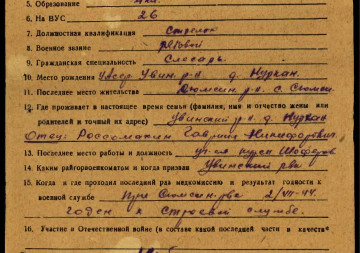 5. Образование
6. На ВУС 26
7. Должностная квалификация стрелок
8. Военное звание рядовой
9. Гражданская специальность Слесарь
10. Место рождения Увин. р-н д. Нуркан.
11. Последнее место жительства р-н с.
12. Где проживает в настоящее время семья (фамилия, имя и отчество жены или
родителей и точный их адрес) Увинский р-н. д. Нуркан
Отец: Гаврил Никифорович
13. Последнее место работы и должность
14. Каким райгорвоенкоматом и когда призван Увинский рвк
15. Когда и где проходил последний раз медкомиссию и результат годности к
военной службе При рвк 2/VII-44.
Годен к строевой службе.
16. Участие в Отечественной войне (в составе какой последней части и в качестве